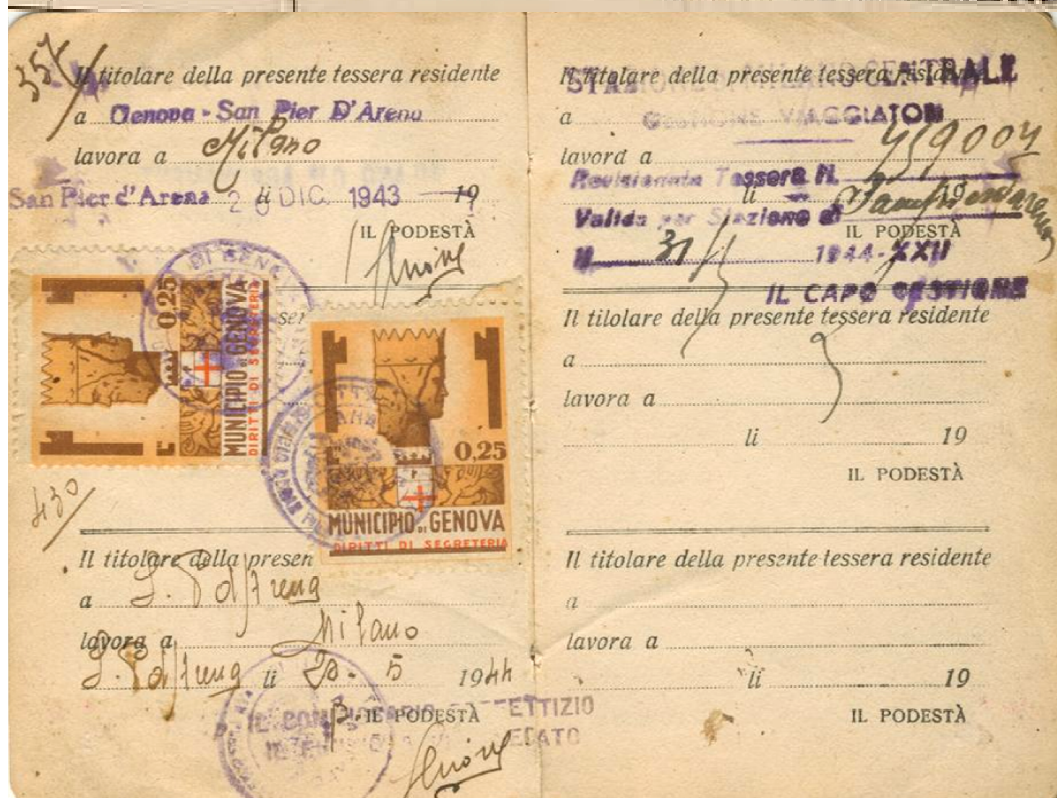 357
Il titolare della presente tessera residente
a Genova - San Pier D'Arena
lavora a Milano
San Pier d'Arena li 29 DIC. 1943 19
IL PODESTÀ
0,25
MUNICIPIO DI GENOVA
DIRITTI DI SEGRETERIA
0,25
MUNICIPIO DI GENOVA
DIRITTI DI SEGRETERIA
430
Il titolare della presen
a S. P. d'Arena
lavora a Milano
S. P. d'Arena li 20 - 5 1944
P. IL PODESTÀ
Il titolare della presente tessera residente
STAZIONE DI MILANO CENTRALE
a
GESTIONE VIAGGIATORI
lavora a 459004
Revisionata Tessera N.
li 19
Valida per Stazione di Sampierdarena
IL PODESTÀ
li 31/5 1944-XXII
IL CAPO GESTIONE
Il tilolare della presente tessera residente
a
lavora a
li 19
IL PODESTÀ
Il titolare della presente tessera residente
a
lavora a
li 19
IL PODESTÀ